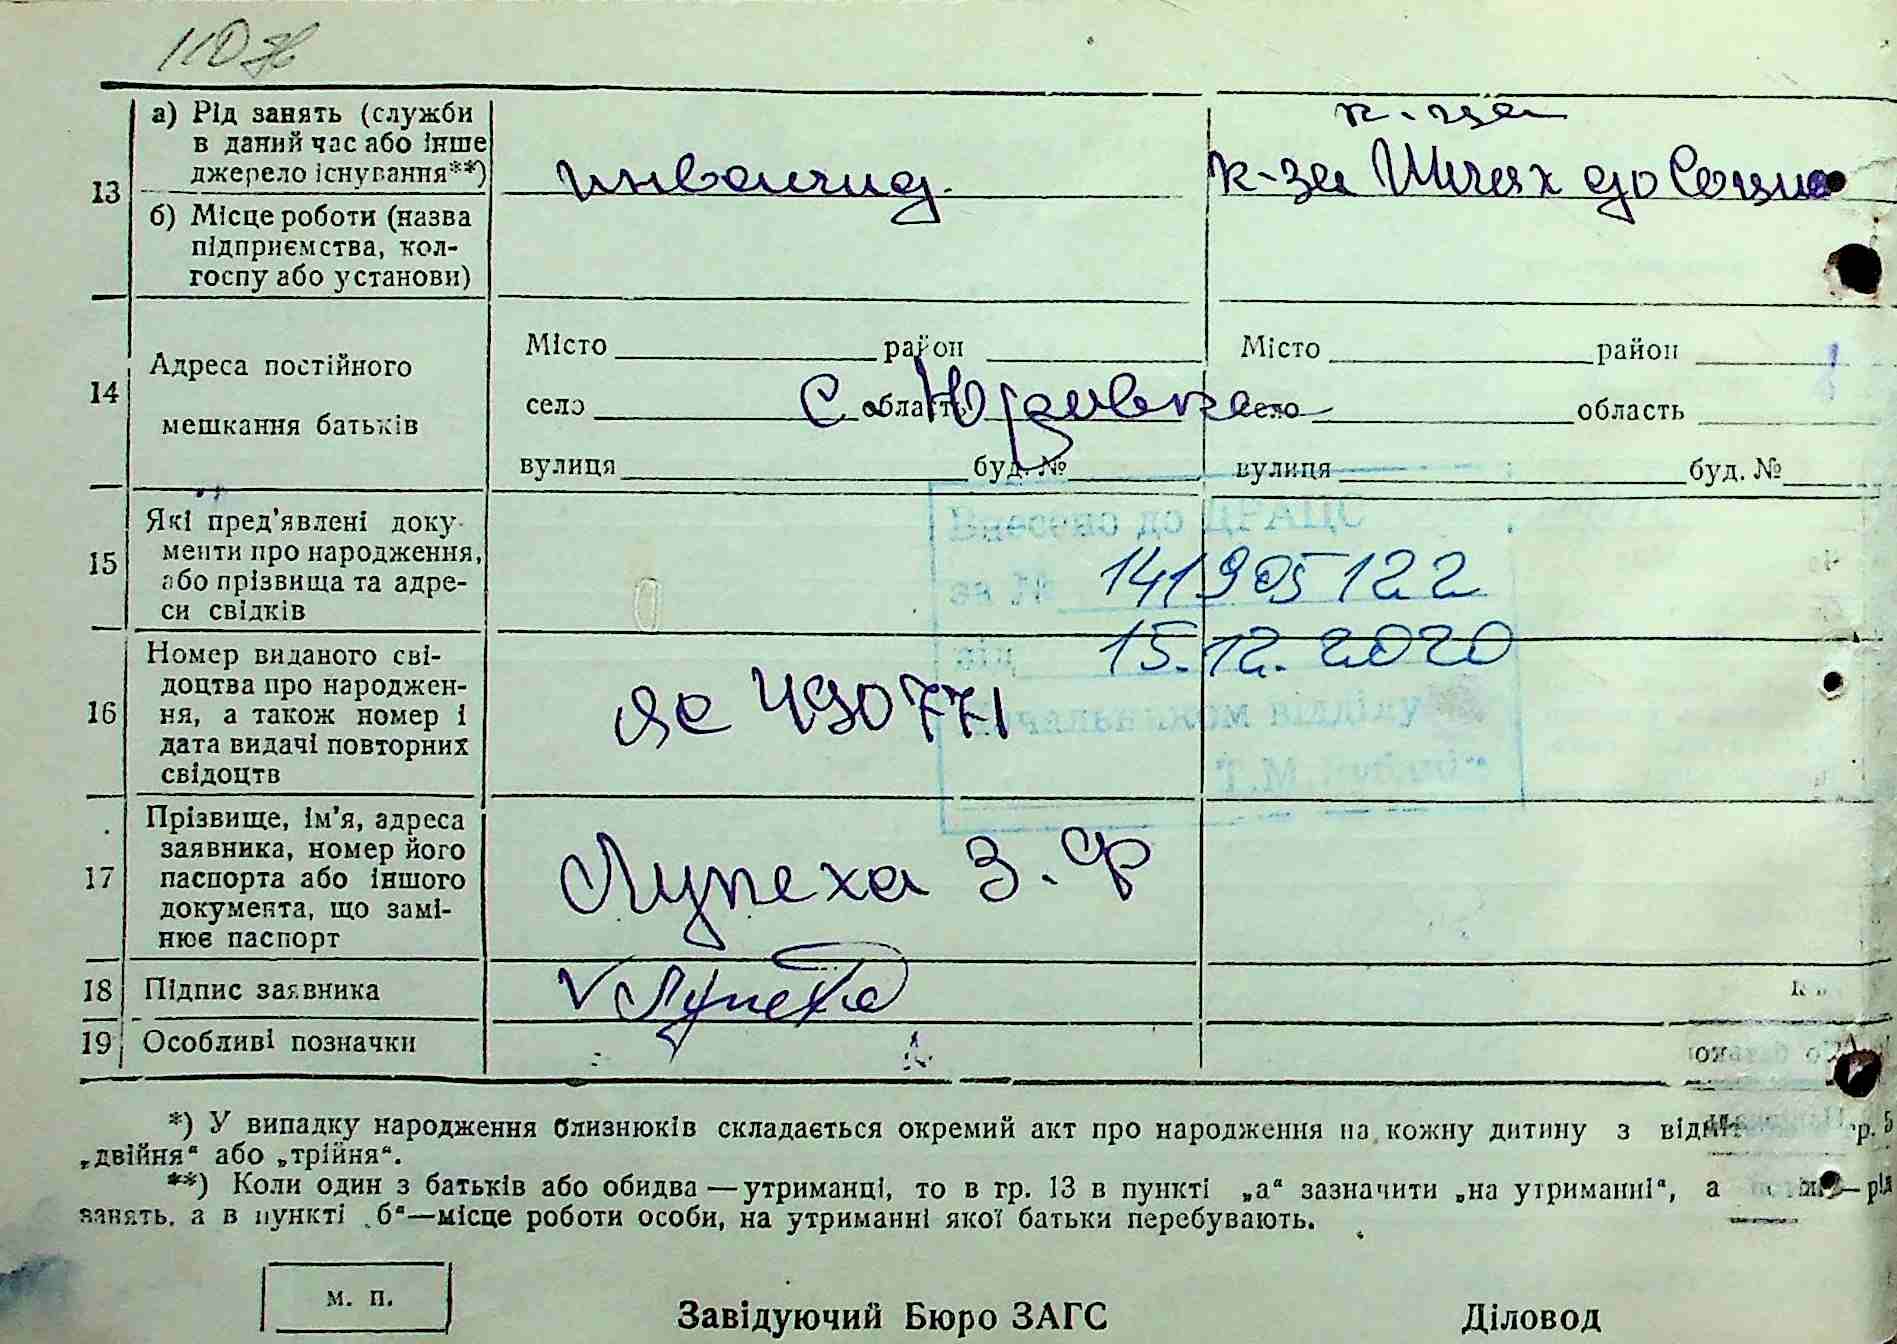 а) Рід занять (служби
в даний час або інше
джерело існування**)
13
инвалид.
к-ца
к-за Шлях до Соціа
б) Місце роботи (назва
підприємства, кол-
госпу або установи)
14
Адреса постійного
мешкання батьків
Місто район
село область
вулиця буд. №
Місто район
село область
вулиця буд. №
с. Юрівка
15
Які пред'явлені доку-
менти про народження,
або прізвища та адре-
си свідків
Внесено до ДРАЦС
за № 141905122
від 15.12.2020
Начальником відділу
Т.М.
16
Номер виданого сві-
доцтва про народжен-
ня, а також номер і
дата видачі повторних
свідоцтв
ЯС 490771
17
Прізвище, ім'я, адреса
заявника, номер його
паспорта або іншого
документа, що замі-
нює паспорт
Лупеха З. Ф
18 Підпис заявника
V Лупеха
19 Особливі позначки
*) У випадку народження близнюків складається окремий акт про народження на кожну дитину з гр. 5
„двійня“ або „трійня“.
**) Коли один з батьків або обидва — утриманці, то в гр. 13 в пункті „а“ зазначити „на утриманні“, а — рід
занять, а в пункті „б“ — місце роботи особи, на утриманні якої батьки перебувають.
м. п.
Завідуючий Бюро ЗАГС
Діловод